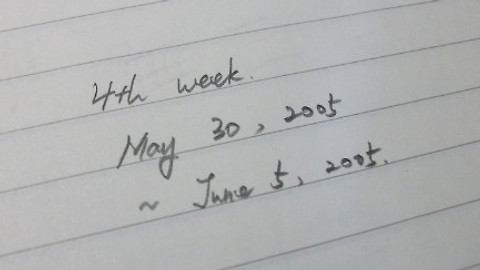 4th week.
May 30, 2005
~ June 5, 2005.